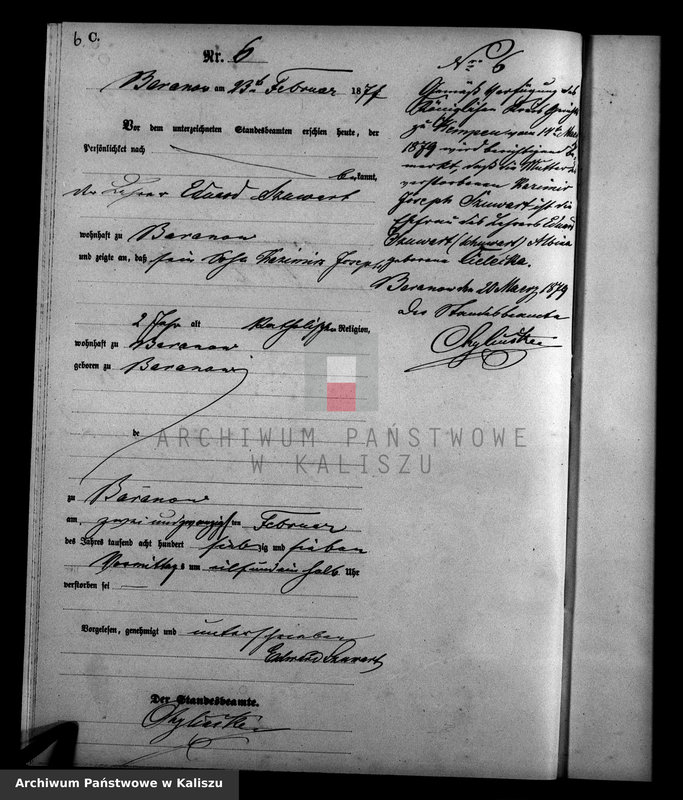 6 C.
Nr. 6
Baranow am 23ten Februar 1877
Vor dem unterzeichneten Standesbeamten erschien heute, der
Persönlichkeit nach
bekannt,
der Lehrer Eduard Szuwart
wohnhaft zu Baranow
und zeigte an, daß sein Sohn Kazimir Joseph
2 Jahr alt Katholischer Religion,
wohnhaft zu Baranow
geboren zu Baranow
de
zu Baranow
am zwei und zwanzigsten Februar
des Jahres tausend acht hundert siebzig und sieben
Vormittags um eilf und ein halb Uhr
verstorben sei
Vorgelesen, genehmigt und unterschrieben
Eduard Szuwart
Der Standesbeamte.
No 6
Gemäß Verfügung des
Königlichen Kreis Gerichts
zu Kempen vom 14ten März
1879 wird berichtigend be-
merkt, daß die Mutter des
verstorbenen Kazimir
Joseph Szuwart ist die
Ehefrau des Lehrers Eduard
Szuwart (Schuwart) Albina
geborene Cielecka.
Baranow den 20 Maerz 1879
Der Standesbeamte
ARCHIWUM PAŃSTWOWE
W KALISZU
Archiwum Państwowe w Kaliszu